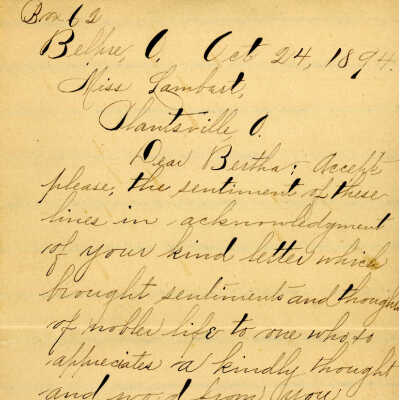 Box 62
Belpre, O. Oct 24, 1894.
Miss Lambart,
Plantsville, O.
Dear Bertha: Accept
please, the sentiment of these
lines in acknowledgment
of your kind letter which
brought sentiments and thoughts
of nobler life to one who so
appreciates a kindly thought
and word from you